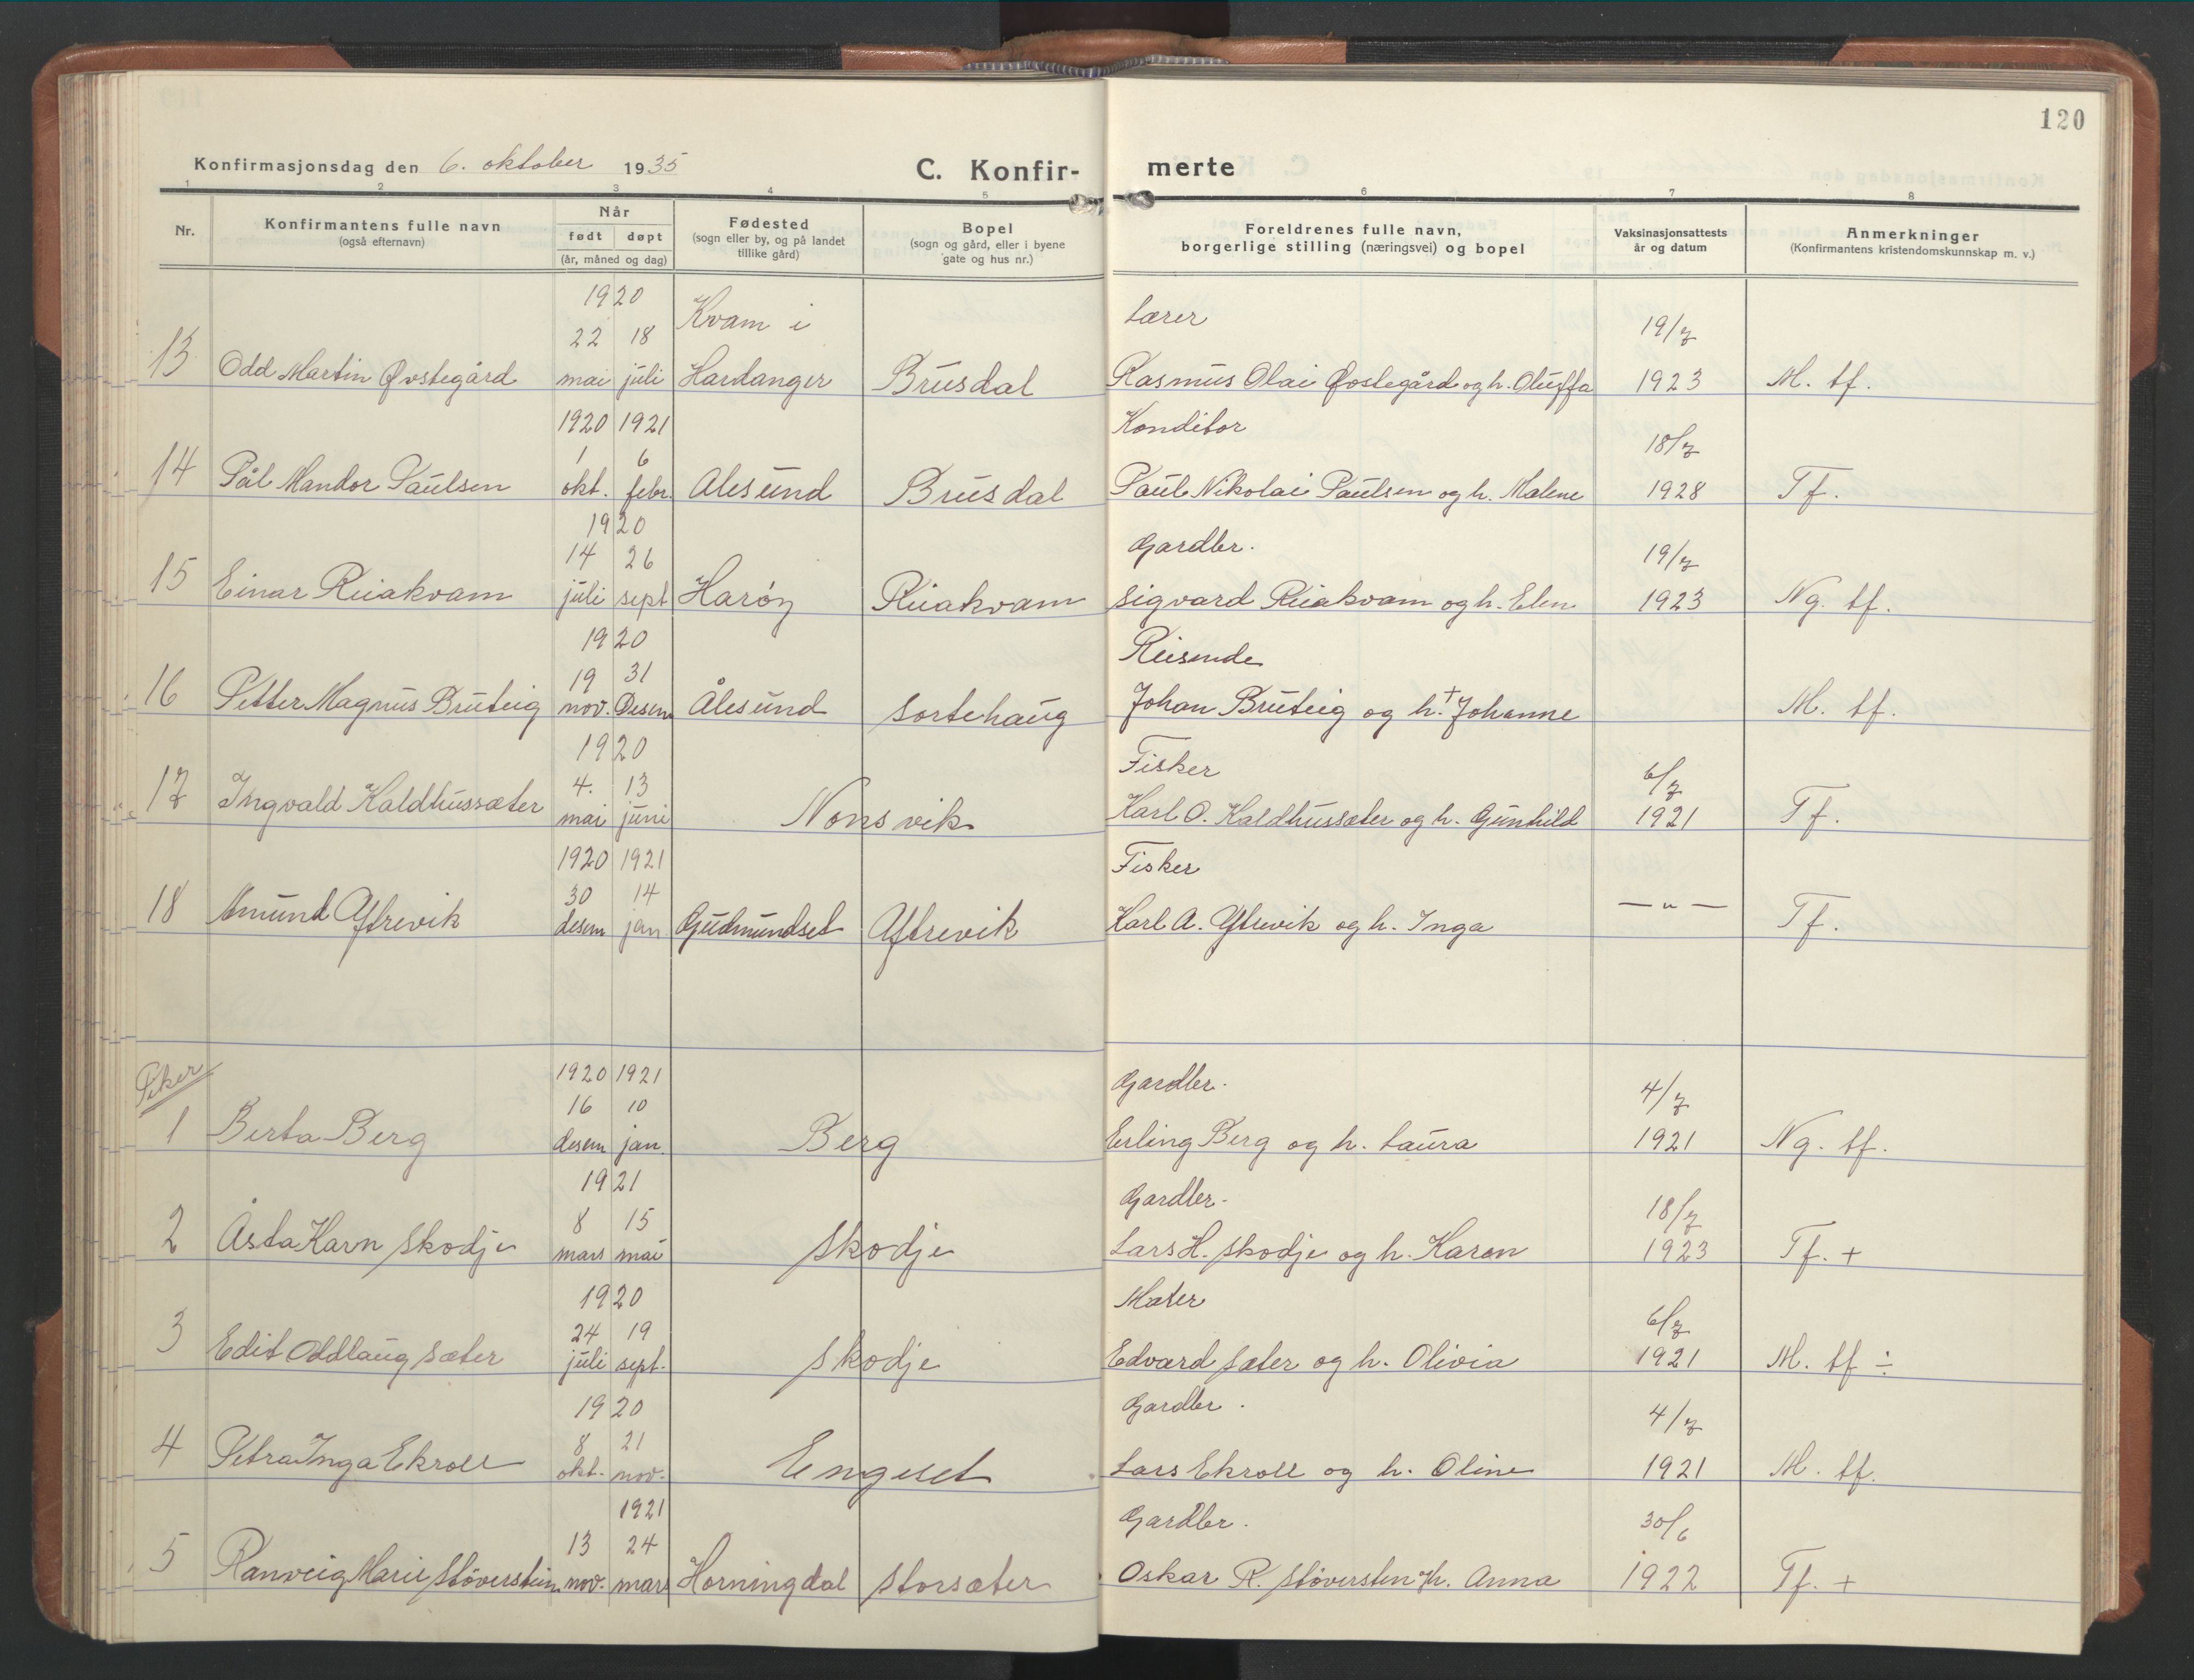 120
Konfirmasjonsdag den 6. oktober 1935
C. Konfir- merte
1 2 3 4 5 6 7 8
Nr.
Konfirmantens fulle navn
(også efternavn)
Når
født døpt
(år, måned og dag)
Fødested
(sogn eller by, og på landet
tillike gård)
Bopel
(sogn og gård, eller i byene
gate og hus nr.)
Foreldrenes fulle navn,
borgerlige stilling (næringsvei) og bopel
Vaksinasjonsattests
år og datum
Anmerkninger
(Konfirmantens kristendomskunnskap m. v.)
1920 Kvam i Lærer
22 18 19/7
13 Odd Martin Øvstegård mai juli Hardanger Brusdal Rasmus Olai Øvstegård og h. Oluffa 1923 M. tf.
1920 1921 Konditor
1 6 18/7
14 Pål Mandor Paulsen okt. febr. Ålesund Brusdal Paul Nikolai Paulsen og h. Malene 1928 Tf.
1920
14 26 Gardbr. 19/7
15 Einar Ruakvam juli sept Harøy Ruakvam Sigvard Ruakvam og h. Elen 1923 Ng. tf.
1920 Reisende
19 31
16 Petter Magnus Bruteig nov. Desem Ålesund Sortehaug Johan Bruteig og h. + Johanne M. tf.
1920 Fisker
4. 13 6/7
17 Ingvald Kaldhussæter mai juni Nonsvik Karl O. Kaldhussæter og h. Gunhild 1921 Tf.
1920 1921 Fisker
30 14
18 Amund Ytrevik desem jan. Gudmundset Ytrevik Karl A. Ytrevik og h. Inga — " — Tf.
Piker
1920 1921 Gardbr.
16 10 4/7
1 Berta Berg desem jan. Berg Erling Berg og h. Laura 1921 Ng. tf.
1921 Gardbr.
8 15 18/7
2 Åsta Karn Skodje mars mai Skodje Lars H. Skodje og h. Karen 1923 Tf. +
1920 Maler
24 19 6/7
3 Edit Oddlaug Sæter juli sept. Skodje Edvard Sæter og h. Olivia 1921 M. tf ÷
1920 Gardbr.
8 21 4/7
4 Petra Inga Ekroll okt. nov. Engeset Lars Ekroll og h. Oline 1921 M. tf.
1921 Gardbr.
13 24 30/6
5 Ranveig Marie Støverstein nov. mars Horningdal Storsæter Oskar R. Støversten og h. Anna 1922 Tf. +